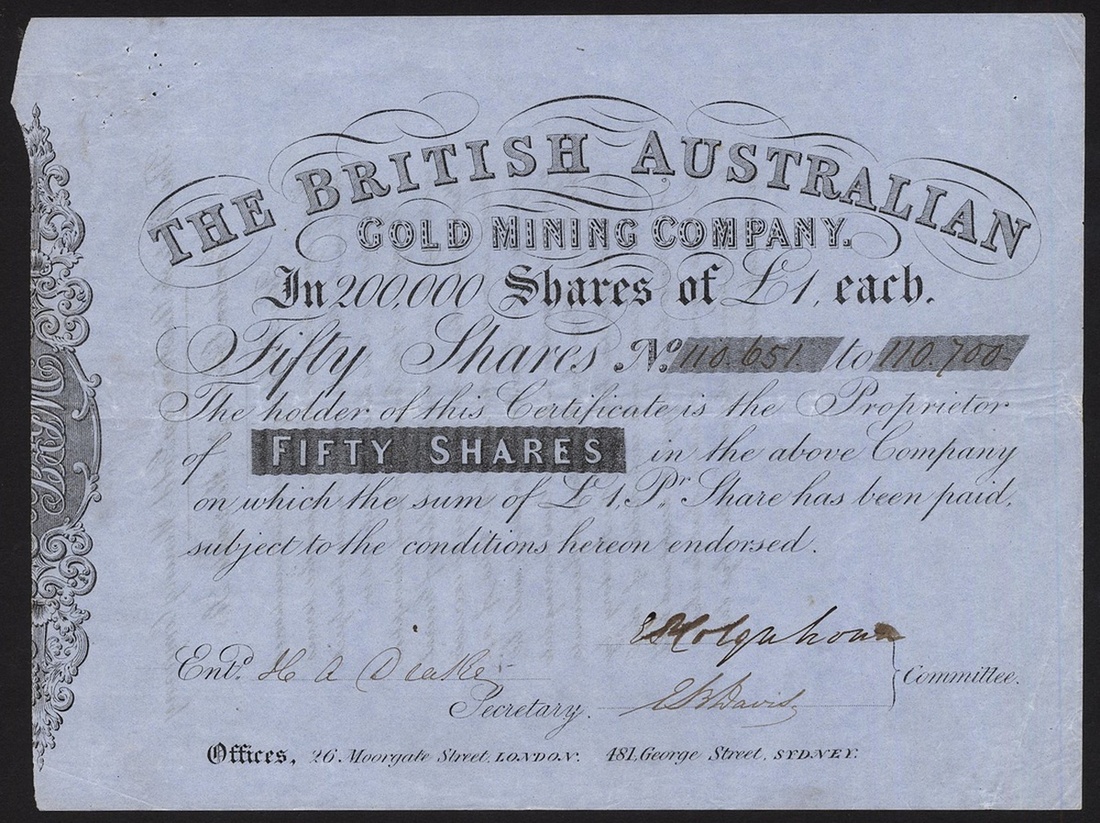 THE BRITISH AUSTRALIAN
GOLD MINING COMPANY.
In 200,000 Shares of £1, each.
Fifty Shares No. 110.651. to 110.700.
The holder of this Certificate is the Proprietor
of FIFTY SHARES in the above Company
on which the sum of £1, Pr. Share has been paid,
subject to the conditions hereon endorsed.
Colquhoun
Entd. H A Drake
Committee.
Secretary. E B Davis
Offices, 26. Moorgate Street, LONDON. 481, George Street, SYDNEY.